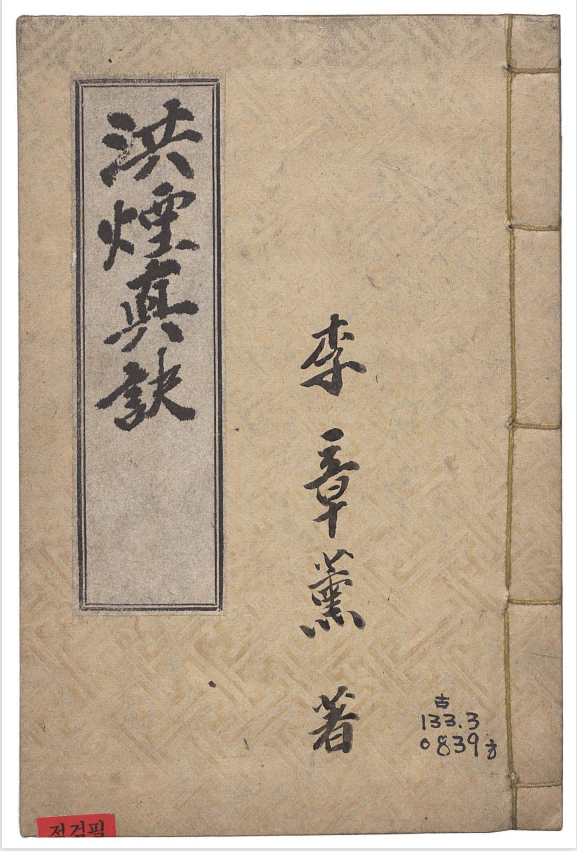 洪煙真訣
李章薰著
古
133.3
0839ㅎ
점검필